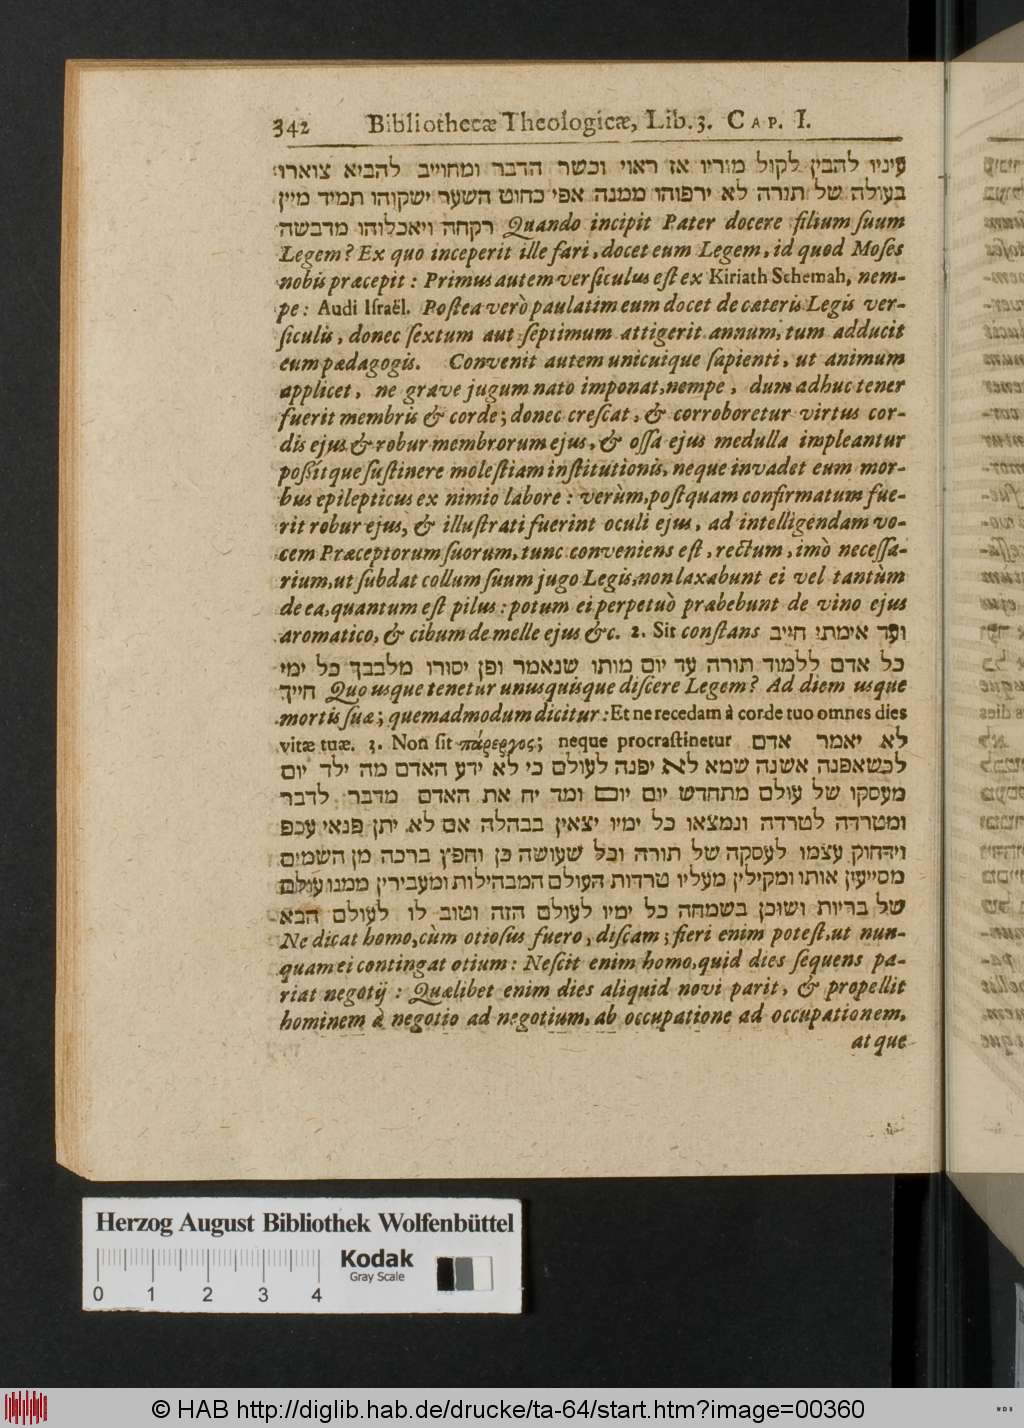 342 Bibliothecæ Theologicæ, Lib. 3. CAP. I.
עיניו להבין לקול מוריו אז ראוי וכשר הדבר ומחוייב להביא צוארו
בעולה של תורה לא ירפוהו ממנה אפי כחוט השער ישקוהו תמיד מיין
רקחה ויאכלוהו מדבשה Quando incipit Pater docere filium ſuum
Legem? Ex quo inceperit ille fari, docet eum Legem, id quod Moſes
nobis præcepit: Primus autem verſiculus eſt ex Kiriath Schemah, nem-
pe: Audi Iſraël. Poſtea verò paulatim eum docet de cæteris Legis ver-
ſiculis, donec ſextum aut ſeptimum attigerit annum, tum adducit
eum pædagogis. Convenit autem unicuique ſapienti, ut animum
applicet, ne grave jugum nato imponat, nempe, dum adhuc tener
fuerit membris & corde; donec creſcat, & corroboretur virtus cor-
dis ejus & robur membrorum ejus, & oſſa ejus medulla impleantur
poßitque ſuſtinere moleſtiam inſtitutionis, neque invadet eum mor-
bus epilepticus ex nimio labore: verùm, poſtquam confirmatum fue-
rit robur ejus, & illuſtrati fuerint oculi ejus, ad intelligendam vo-
cem Præceptorum ſuorum, tunc conveniens eſt, rectum, imò neceſſa-
rium, ut ſubdat collum ſuum jugo Legis, non laxabunt ei vel tantùm
de ea, quantum eſt pilus: potum ei perpetuò præbebunt de vino ejus
aromatico, & cibum de melle ejus &c. 2. Sit conſtans ועד אימתי חייב
כל אדם ללמוד תורה עד יום מותו שנאמר ופן יסורו מלבבך כל ימי
חייך Quo usque tenetur unusquisque diſcere Legem? Ad diem usque
mortis ſuæ; quemadmodum dicitur: Et ne recedam à corde tuo omnes dies
vitæ tuæ. 3. Non ſit πάρεργος; neque procraſtinetur לא יאמר אדם
לכשאפנה אשנה שמא לא יפנה לעולם כי לא ידע האדם מה ילד יום
מעסקו של עולם מתחדש יום יום ומד יח את האדם מדבר לדבר
ומטרדה לטרדה ונמצאו כל ימיו יצאין בבהלה אם לא יתן פנאי עכפ
וידחוק עצמו לעסקה של תורה וכל שעושה כן וחפץ ברכה מן השמים
מסייעין אותו ומקילין מעליו טרדות העולם המבהילות ומעבירין ממנו עולם
של בריות ושוכן בשמחה כל ימיו לעולם הזה וטוב לו לעולם הבא
Ne dicat homo, cùm otioſus fuero, diſcam; fieri enim poteſt, ut nun-
quam ei contingat otium: Neſcit enim homo, quid dies ſequens pa-
riat negotij: Quælibet enim dies aliquid novi parit, & propellit
hominem à negotio ad negotium, ab occupatione ad occupationem,
atque
Herzog August Bibliothek Wolfenbüttel
Kodak
Gray Scale
0 1 2 3 4
© HAB http://diglib.hab.de/drucke/ta-64/start.htm?image=00360